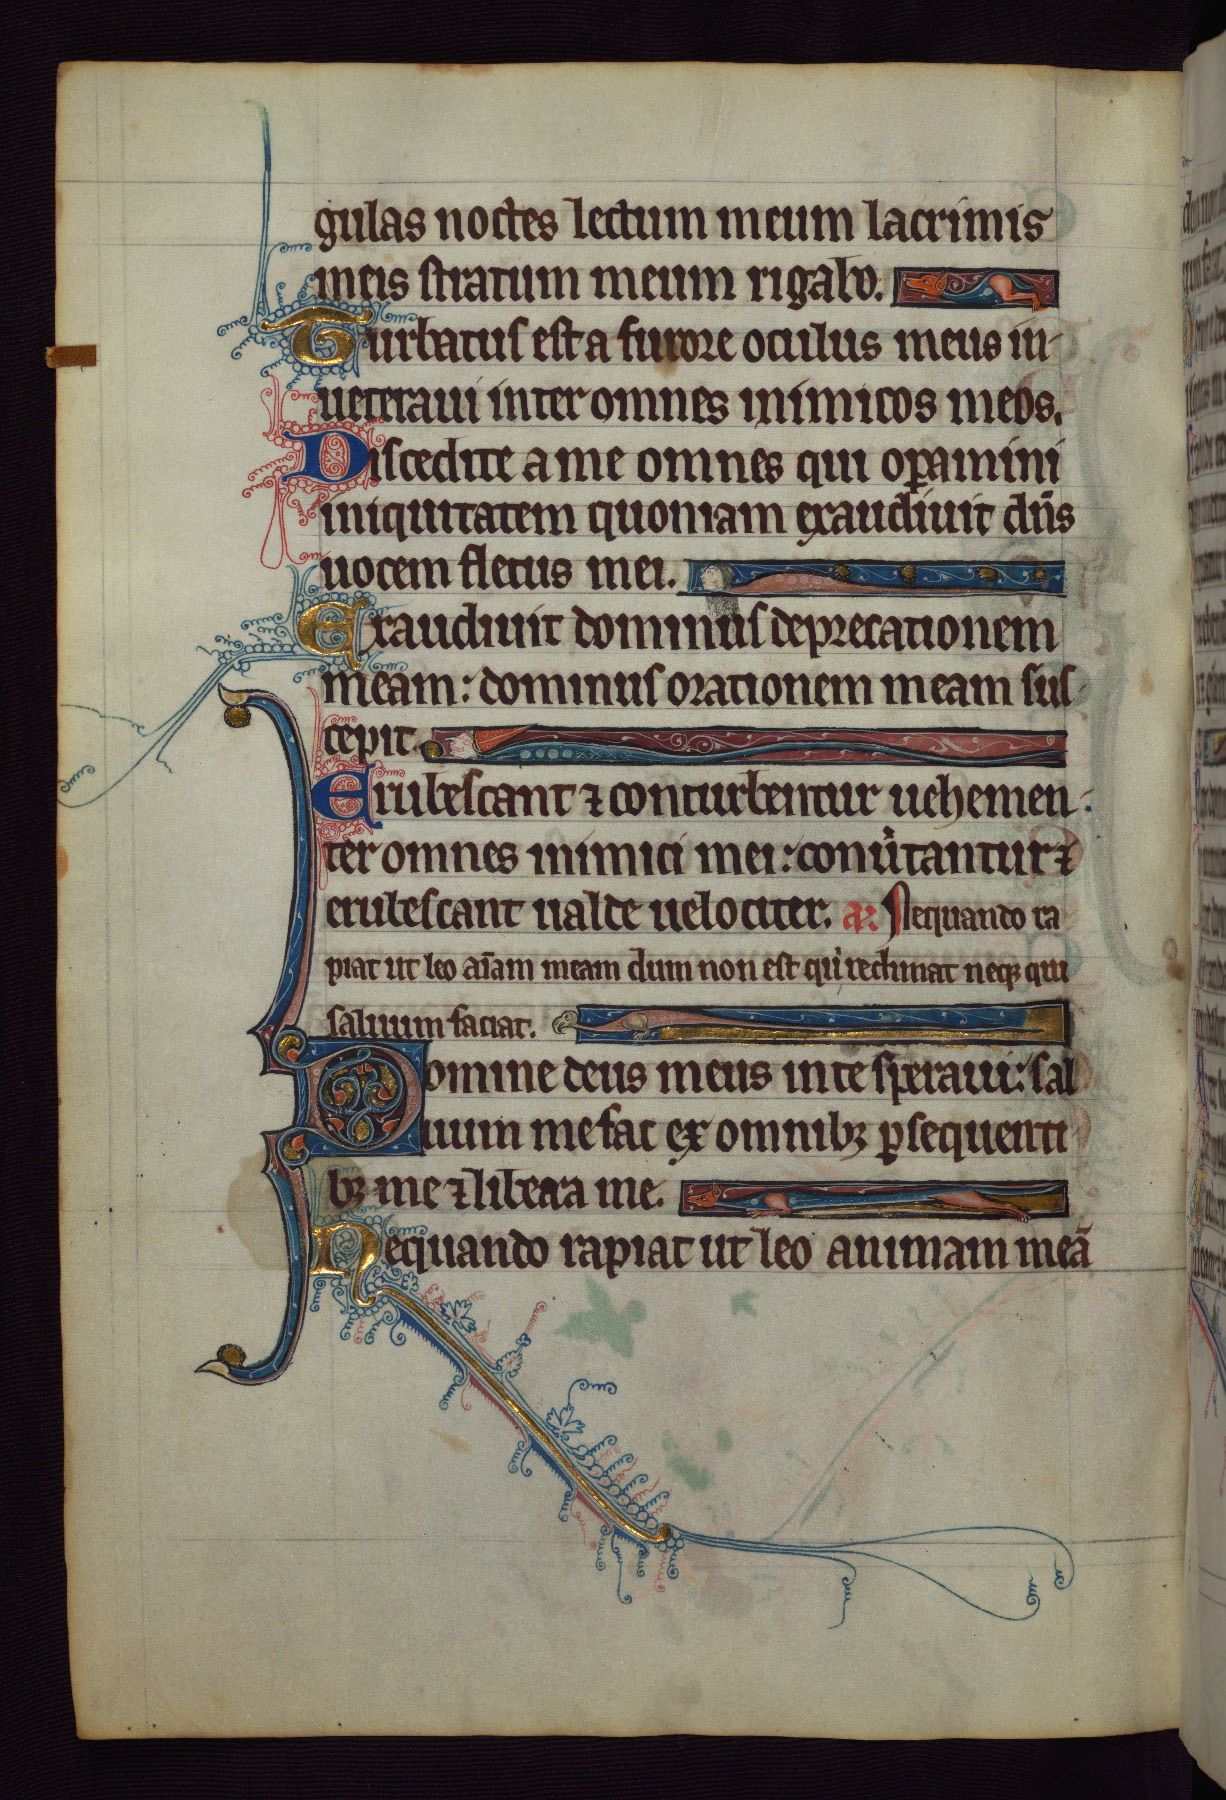 gulas noctes lectum meum lacrimis
meis stratum meum rigabo.
Turbatus est a furore oculus meus in-
ueteraui inter omnes inimicos meos.
Discedite a me omnes qui oꝑamini
iniquitatem quoniam exaudiuit dn̄s
uocem fletus mei.
Exaudiuit dominus deprecationem
meam: dominus orationem meam sus-
cepit.
Erubescant ⁊ conturbentur uehemen-
ter omnes inimici mei: conu̾tantur ⁊
erubescant ualde uelociter. a͞. Nequando ra
piat ut leo aīam meam dum non est qui redimat neqꝫ qui
saluum faciat.
Domine deus meus in te speraui: sal
uum me fac ex omnibꝫ ꝑsequenti
bꝫ me ⁊ libera me.
Nequando rapiat ut leo animam meā